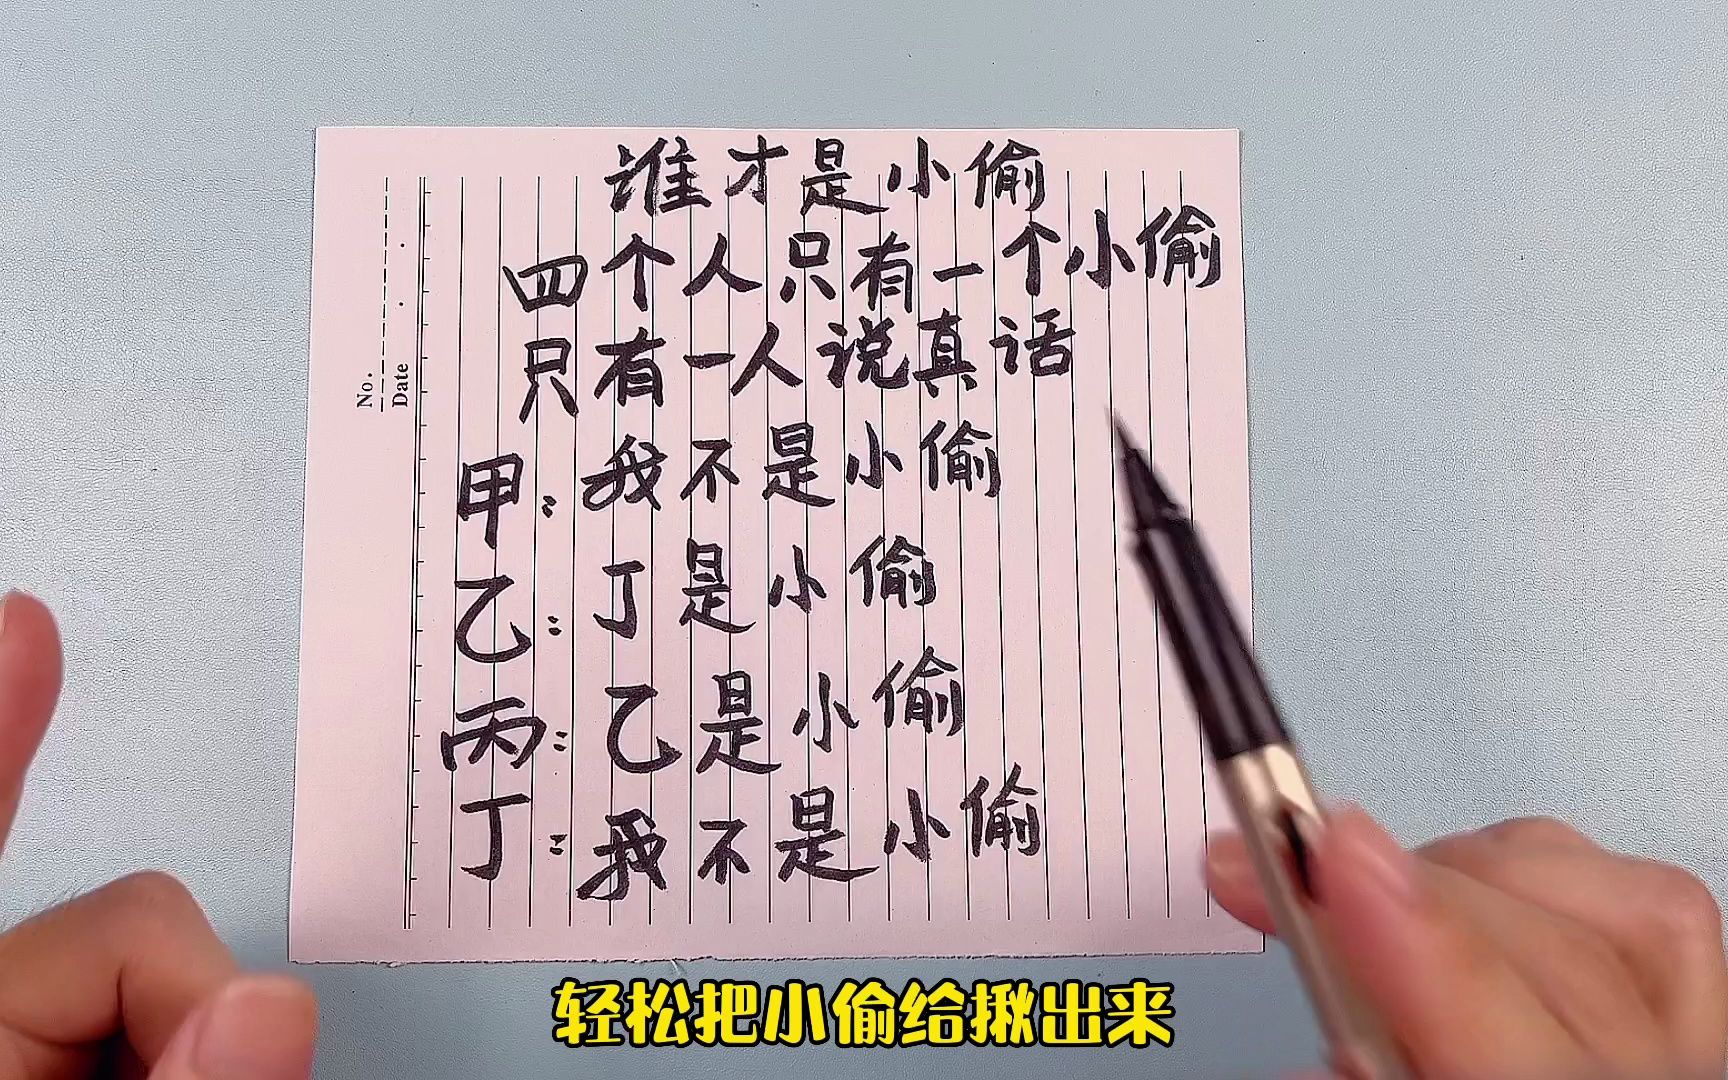 No.
Date
谁才是小偷
四个人只有一个小偷
只有一人说真话
甲:我不是小偷
乙:丁是小偷
丙:乙是小偷
丁:我不是小偷
轻松把小偷给揪出来